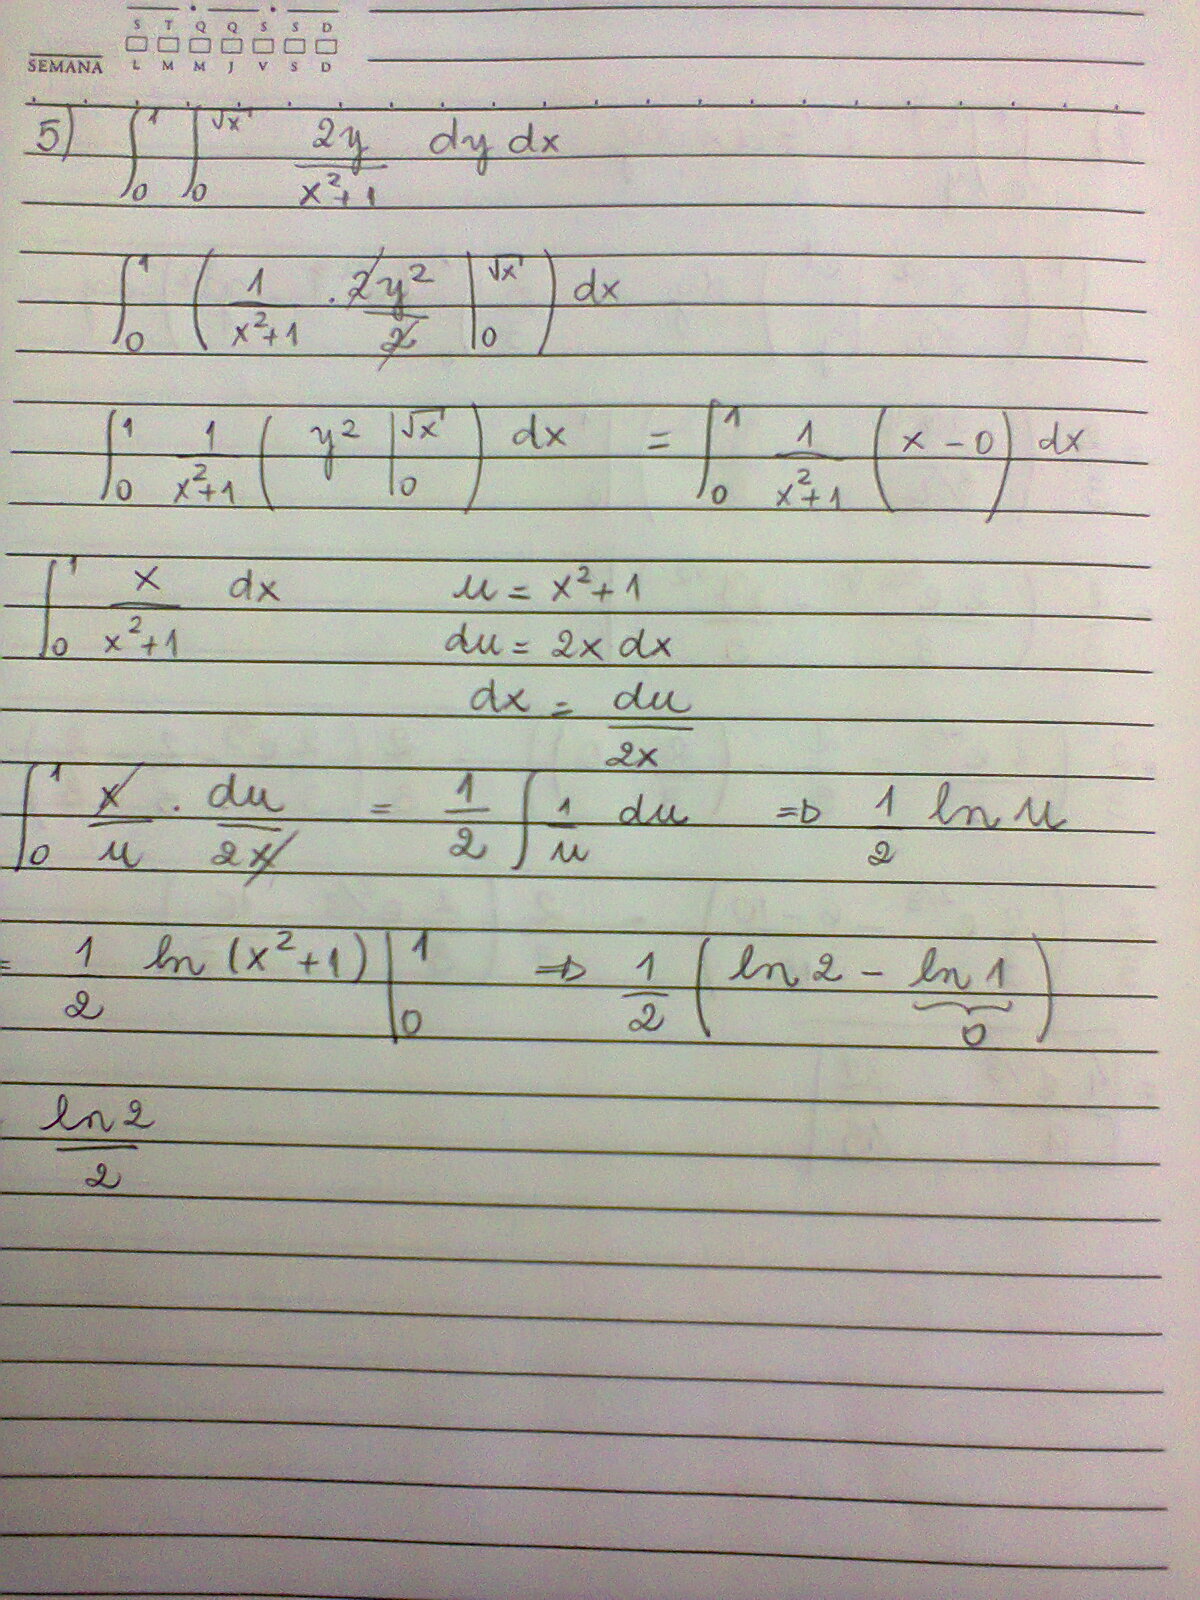 S T Q Q S S D
SEMANA L M M J V S D
5) ∫₀¹ ∫₀^√x 2y/(x²+1) dy dx
∫₀¹ ( 1/(x²+1) · 2y²/2 |₀^√x ) dx
∫₀¹ 1/(x²+1) ( y² |₀^√x ) dx = ∫₀¹ 1/(x²+1) ( x - 0 ) dx
∫₀¹ x/(x²+1) dx u = x²+1
du = 2x dx
dx = du/2x
∫₀¹ x/u · du/2x = 1/2 ∫ 1/u du ⇒ 1/2 ln u
= 1/2 ln (x²+1) |₀¹ ⇒ 1/2 ( ln 2 - ln 1 )
0
ln 2/2